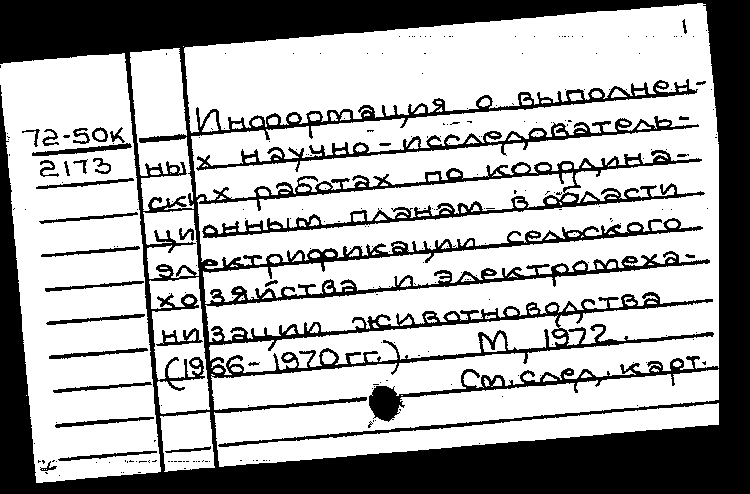 1
Информация о выполнен-
72-50к
2173
ных научно-исследователь-
ских работах по координа-
ционным планам в области
электрификации сельского
хозяйства и электромеха-
низации животноводства
(1966-1970гг.). М., 1972.
См. след. карт.